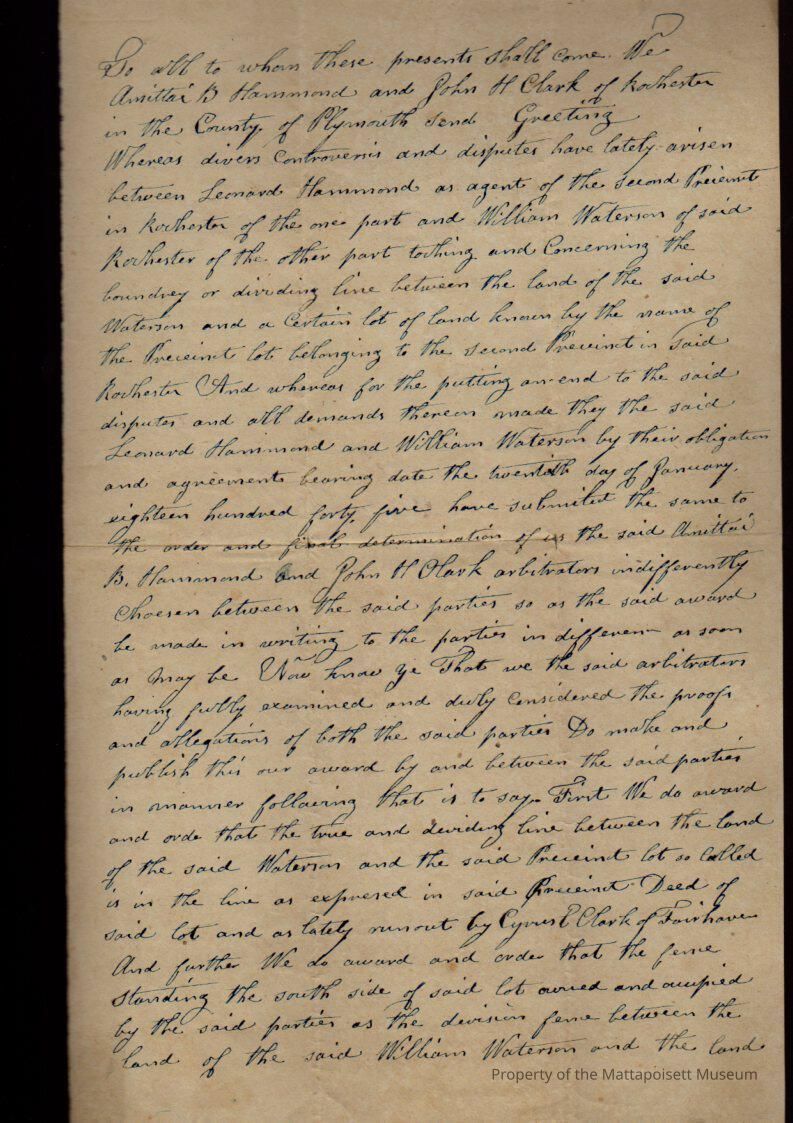 To all to whom these presents shall come We
Amittai B Hammond and John H Clark of Rochester
in the County of Plymouth Send Greeting
Whereas divers Controversis and disputes have lately arisen
between Leonard Hammond as agent of the second Precinct
in Rochester of the one part and William Waterson of said
Rochester of the other part toching and Concerning the
boundrey or dividing line between the land of the said
Waterson and a Certain lot of land known by the name of
the Precinct lot belonging to the second Precinct in said
Rochester And whereas for the putting an end to the said
disputes and all demands thereon made they the said
Leonard Hammond and William Waterson by their obligation
and agreement bearing date the twentith day of January
eighteen hundred forty five have submitted the same to
the order and final determination of us the said Amittai
B. Hammond and John H Clark arbitrators indifferently
Choesen between the said parties so as the said award
be made in writing to the parties in differen as soon
as may be Now know ye That we the said arbitrators
having fully examined and duly Considered the proofs
and allegations of both the said parties Do make and
publish this our award by and between the said parties
in manner following that is to say First We do award
and orde that the true and dividing line between the land
of the said Waterson and the said Precinct lot so Called
is in the line as expresed in said Precinct Deed of
said lot and as lately run out by Cyrus E Clark of Fairhaven
And further We do award and order that the fence
standing the south side of said lot owned and occupied
by the said parties as the division fence between the
land of the said William Waterson and the land
Property of the Mattapoisett Museum